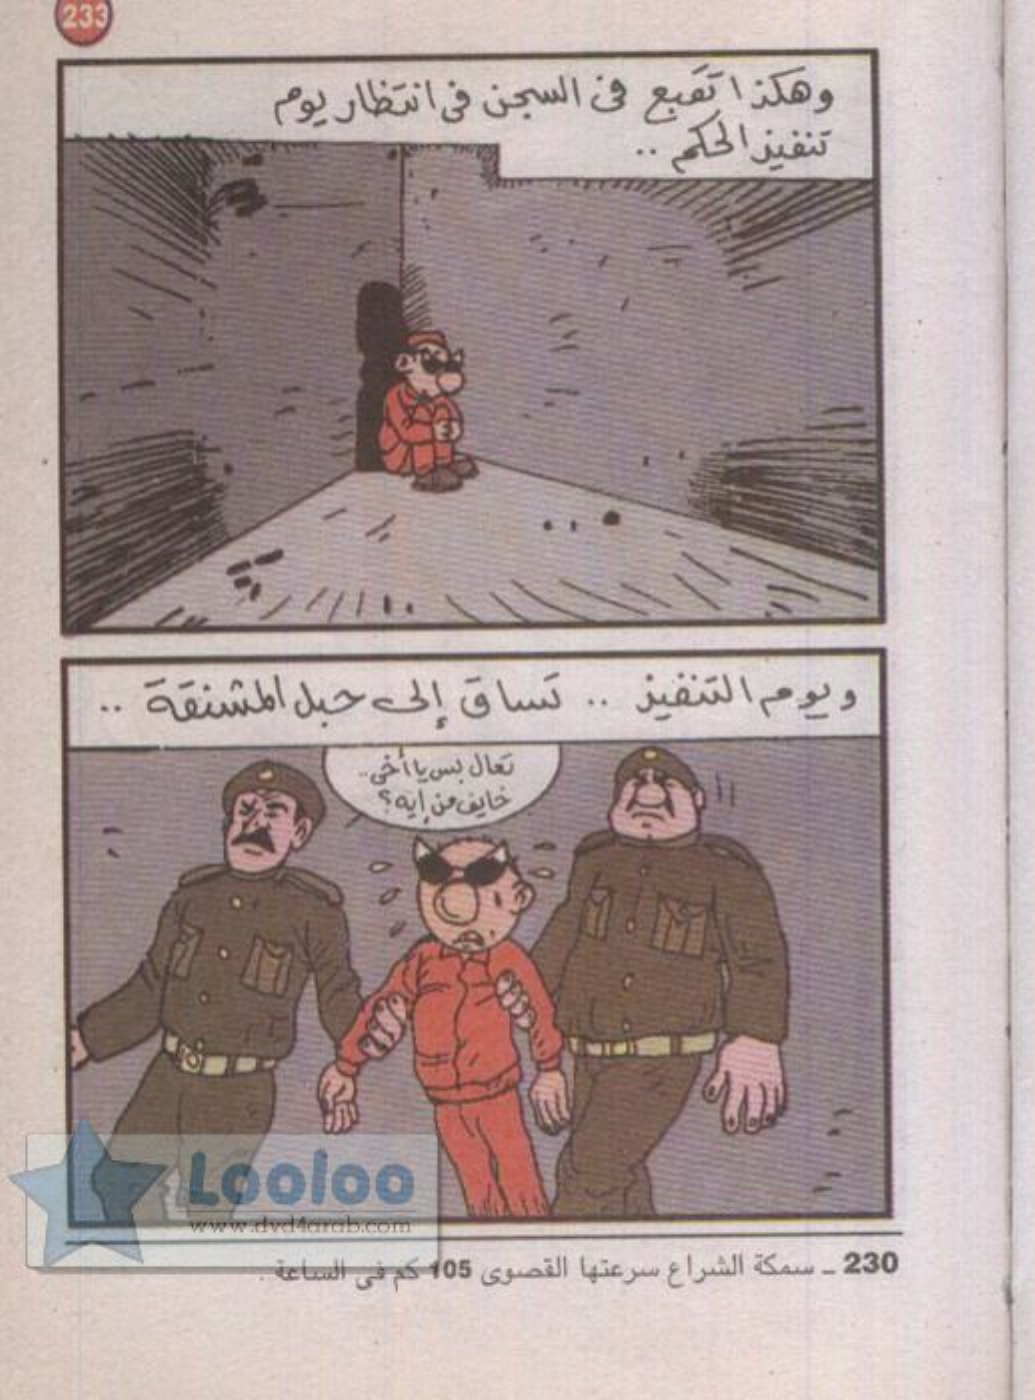 233
وهكذا تقبع فى السجن فى انتظار يوم
تنفيذ الحكم ..
ويوم التنفيذ .. تساق إلى حبل المشنقة ..
تعال بس يا أخى..
خايف من إيه؟
Looloo
www.dvd4arab.com
230 ــ سمكة الشراع سرعتها القصوى 105 كم فى الساعة .